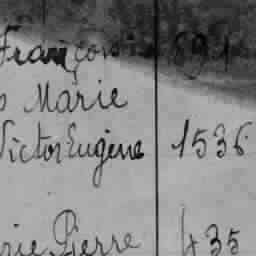 François 891
Marie
Victor Eugène 1536
Pierre 435